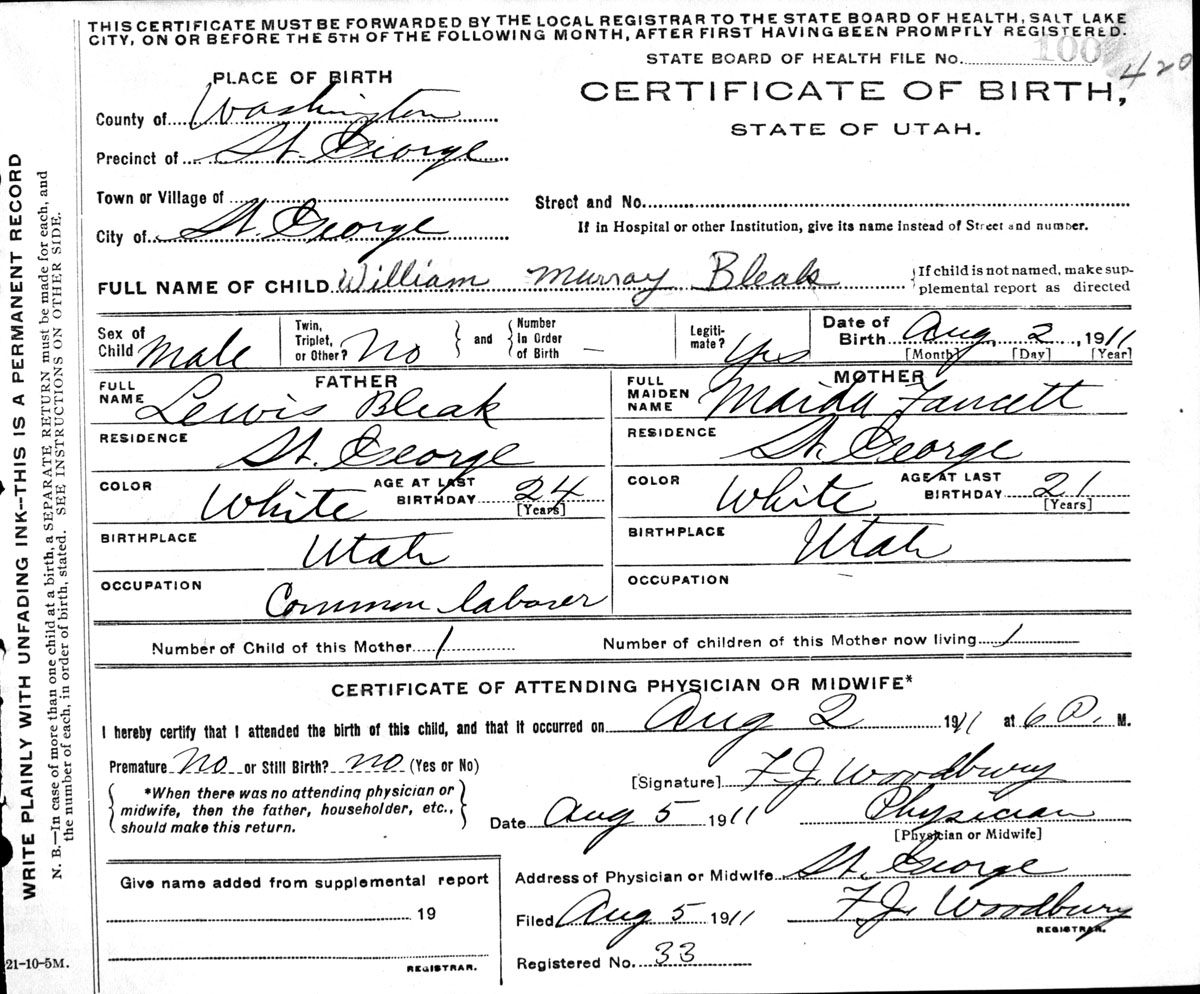 THIS CERTIFICATE MUST BE FORWARDED BY THE LOCAL REGISTRAR TO THE STATE BOARD OF HEALTH, SALT LAKE
CITY, ON OR BEFORE THE 5TH OF THE FOLLOWING MONTH, AFTER FIRST HAVING BEEN PROMPTLY REGISTERED.
STATE BOARD OF HEALTH FILE No. 100 420
PLACE OF BIRTH
CERTIFICATE OF BIRTH,
STATE OF UTAH.
County of Washington
Precinct of St. George
Town or Village of
Street and No.
City of St. George
If in Hospital or other Institution, give its name instead of Street and number.
FULL NAME OF CHILD William Murray Bleak
{If child is not named, make sup-
plemental report as directed
Sex of Child Male
Twin, Triplet, or Other? No
and
Number In Order of Birth –
Legiti-mate? Yes
Date of Birth Aug 2, 1911
[Month] [Day] [Year]
FATHER
FULL NAME Lewis Bleak
RESIDENCE St. George
COLOR White
AGE AT LAST BIRTHDAY 24
[Years]
BIRTHPLACE Utah
OCCUPATION Common laborer
MOTHER
FULL MAIDEN NAME Maida Fawcett
RESIDENCE St. George
COLOR White
AGE AT LAST BIRTHDAY 21
[Years]
BIRTHPLACE Utah
OCCUPATION –
Number of Child of this Mother 1
Number of children of this Mother now living 1
CERTIFICATE OF ATTENDING PHYSICIAN OR MIDWIFE*
I hereby certify that I attended the birth of this child, and that it occurred on Aug 2 1911 at 6 a. M.
Premature No or Still Birth? no (Yes or No)
{*When there was no attending physician or
midwife, then the father, householder, etc.,
should make this return.}
[Signature] F. J. Woodbury
Date Aug 5 1911
Physician
[Physician or Midwife]
Give name added from supplemental report
19
REGISTRAR.
Address of Physician or Midwife St. George
Filed Aug 5 1911
F. J. Woodbury
REGISTRAR.
Registered No. 33
21-10-5M.
WRITE PLAINLY WITH UNFADING INK—THIS IS A PERMANENT RECORD
N. B.—In case of more than one child at a birth, a SEPARATE RETURN must be made for each, and
the number of each, in order of birth, stated. SEE INSTRUCTIONS ON OTHER SIDE.